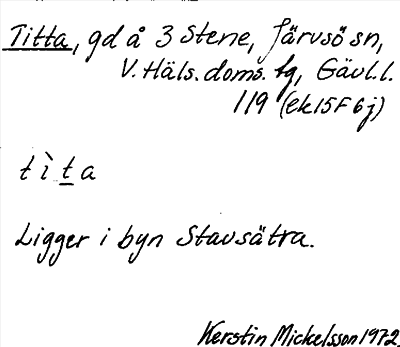 Titta, gd å 3 Stene, Järvsö sn,
V. Häls. doms. tg, Gävl. l.
119 (ek 15F 6j)
t ì t a
Ligger i byn Stavsätra.
Kerstin Mickelsson 1972.